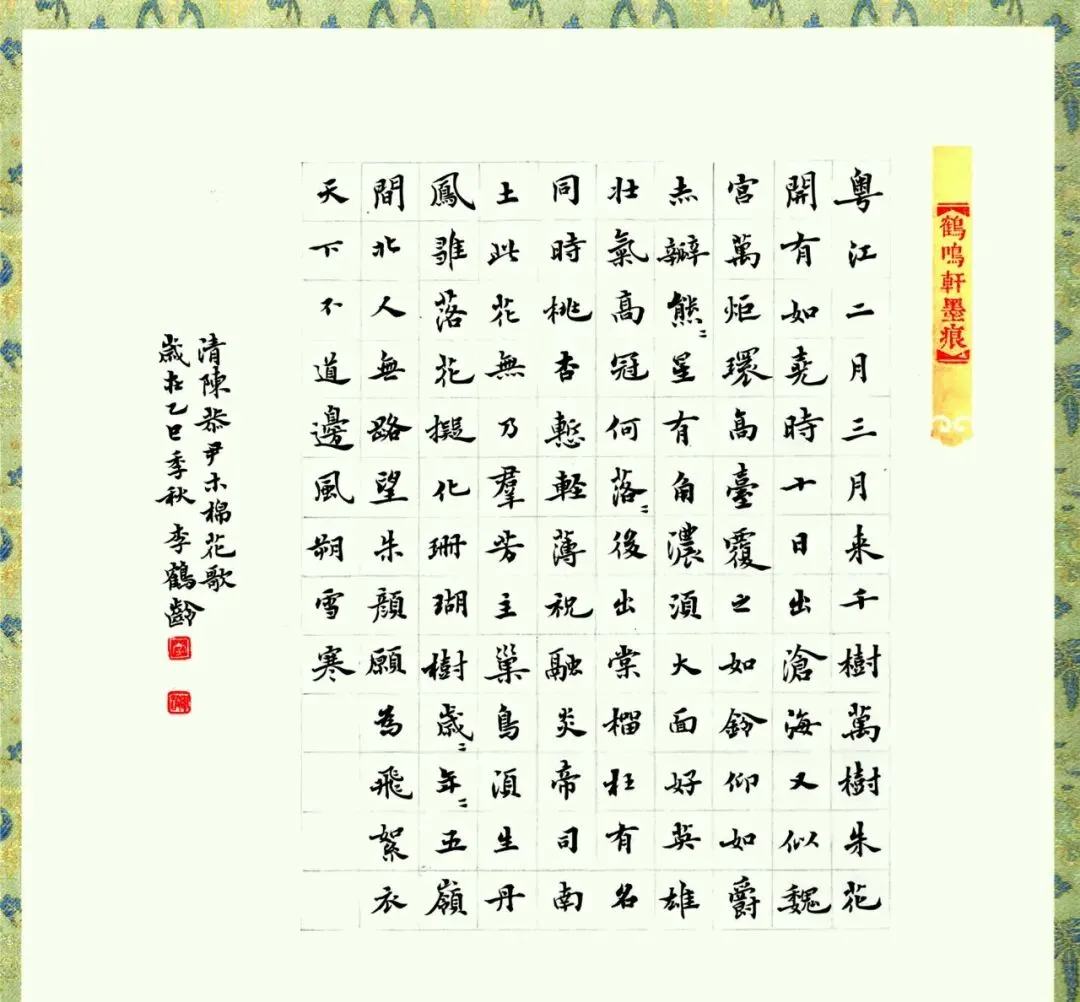 【鶴鳴軒墨痕】
粤江二月三月来千樹萬樹朱花
開有如堯時十日出滄海又似魏
宮萬炬環高臺覆之如鈴仰如爵
赤瓣熊〻星有角濃須大面好英雄
壮氣高冠何落〻後出棠榴枉有名
同時桃杏慙軽薄祝融炎帝司南
土此花無乃羣芳主巢鳥須生丹
鳳雛落花擬化珊瑚樹歲〻年〻五嶺
間北人無路望朱顔願為飛絮衣
天下不道邊風朔雪寒
清陳恭尹木棉花歌
歲在乙巳季秋 李鶴齡